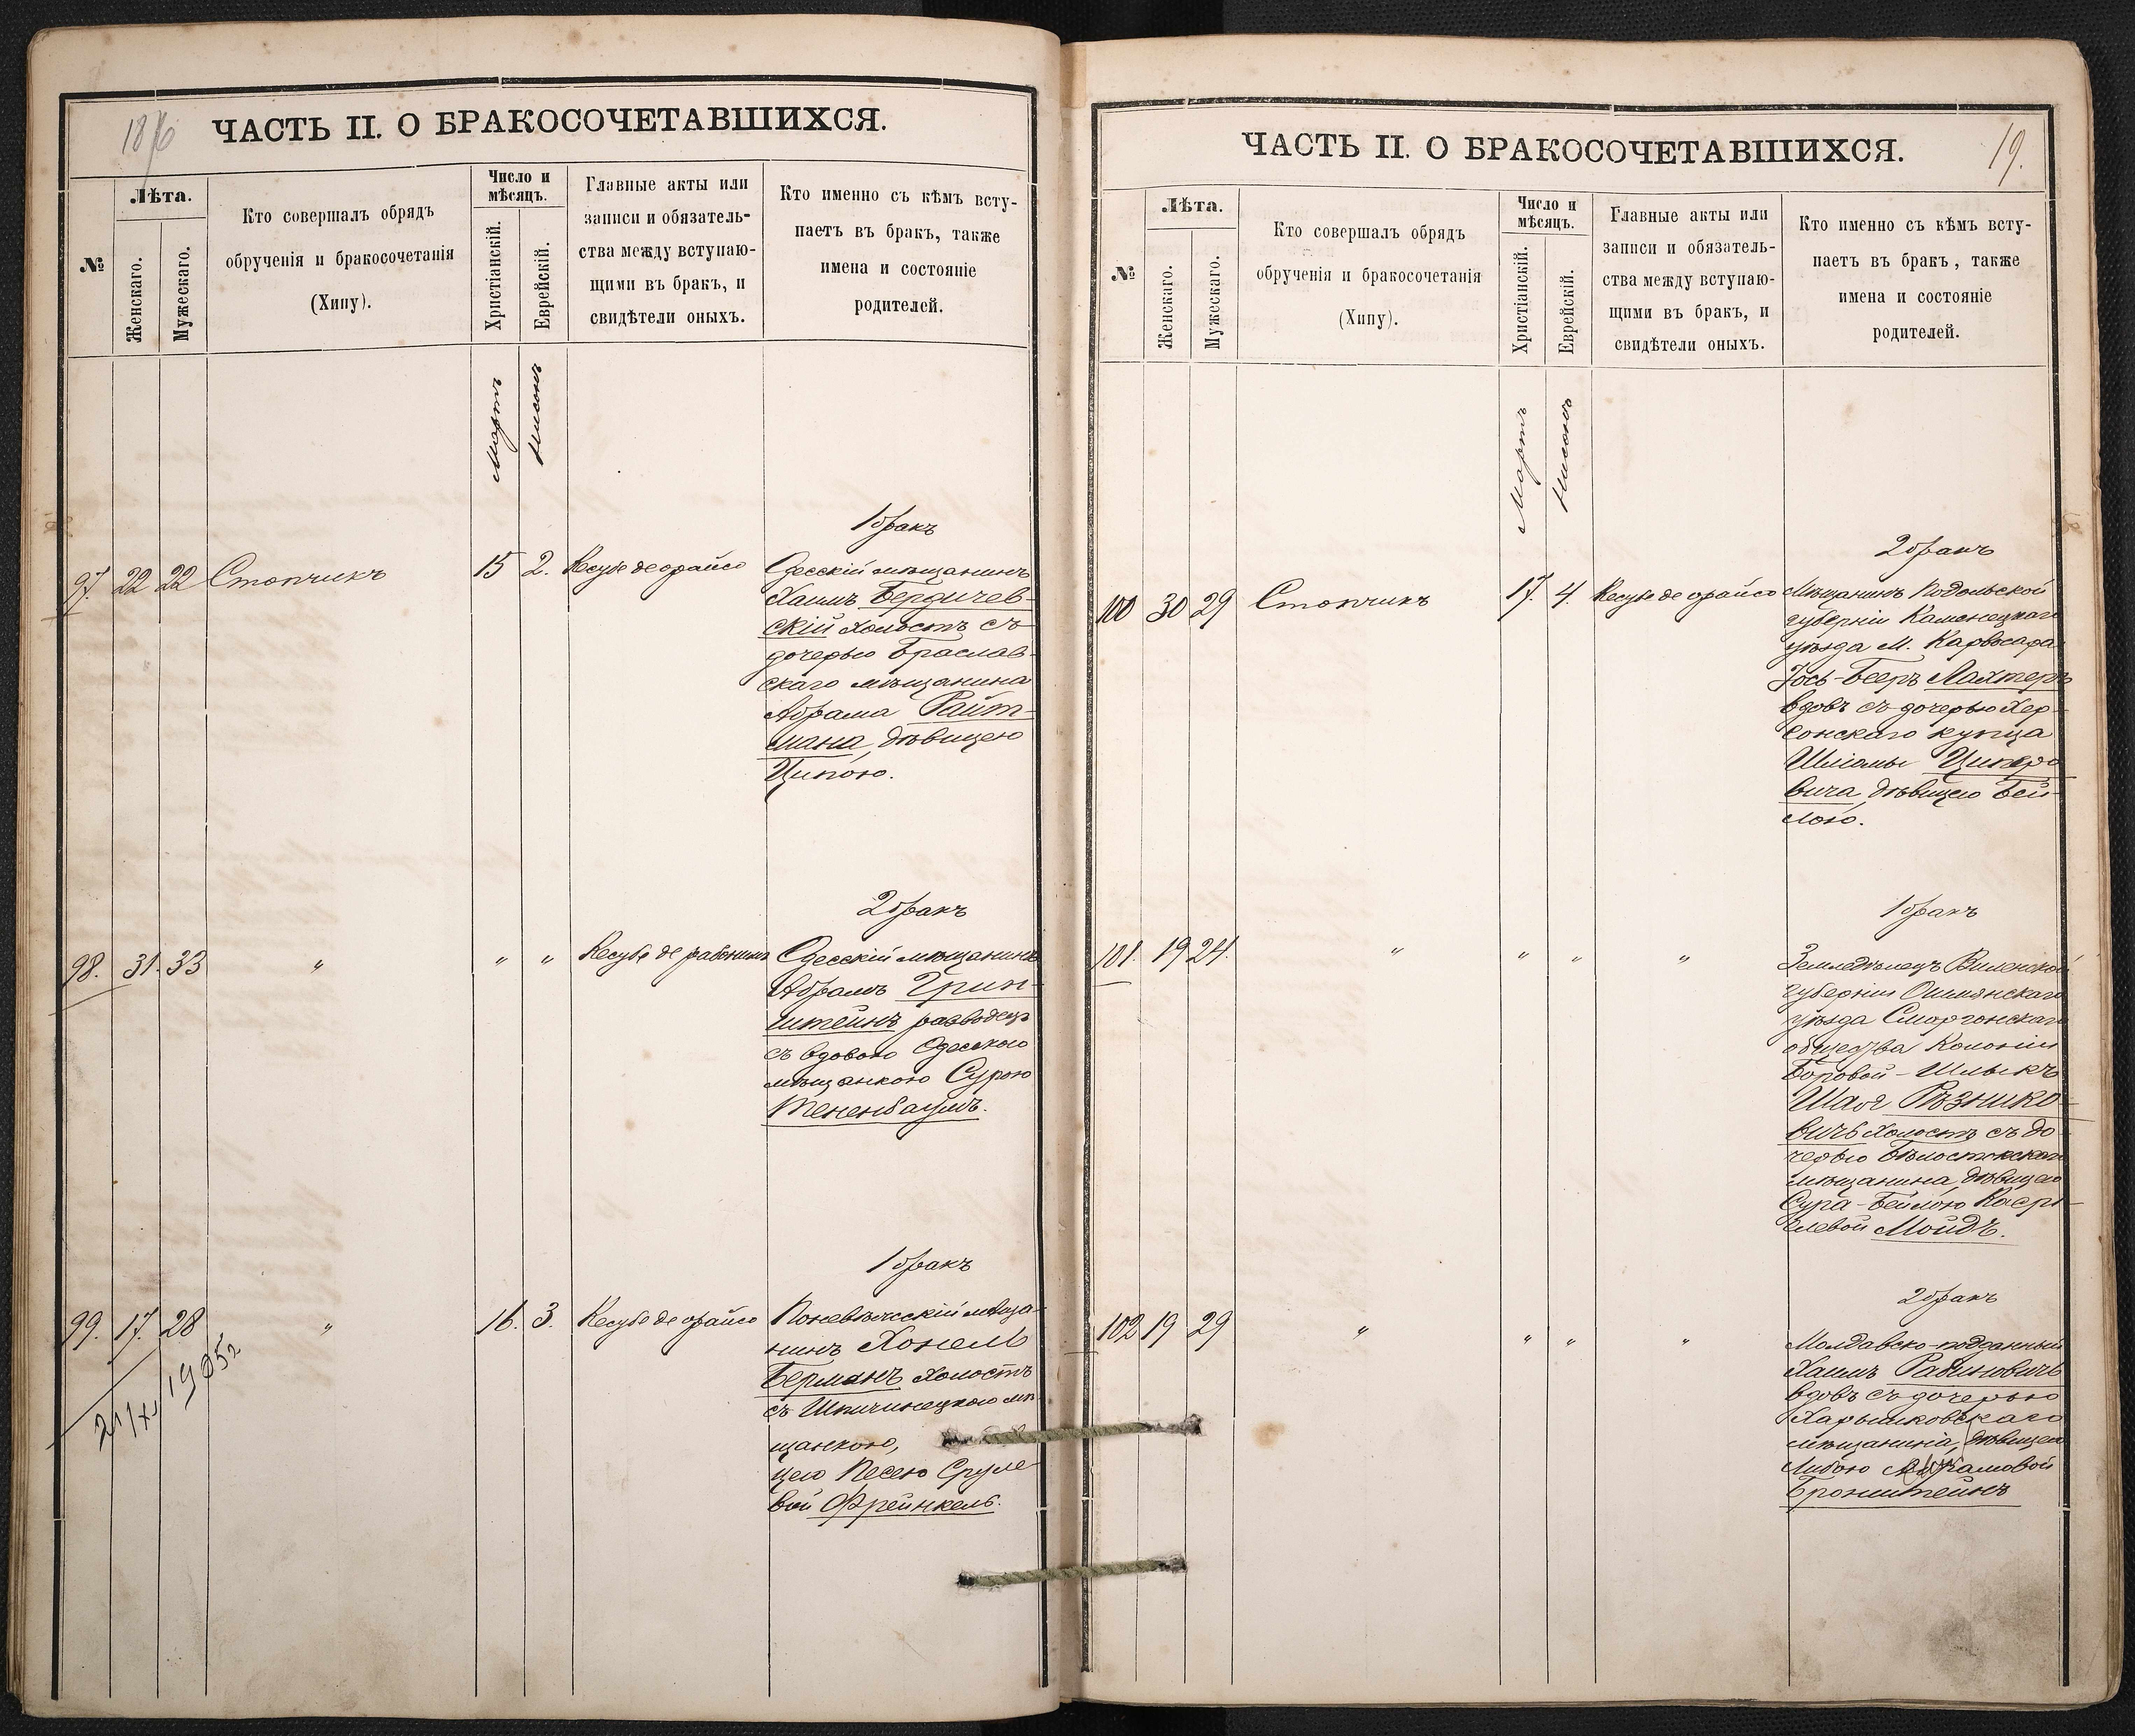 1876
ЧАСТЬ II. О БРАКОСОЧЕТАВШИХСЯ.
№
Лѣта.
Женскаго.
Мужескаго.
Кто совершалъ обрядъ
обрученія и бракосочетанія
(Хипу).
Число и
мѣсяцъ.
Христіанскій.
Еврейскій.
Главные акты или
записи и обязатель-
ства между вступаю-
щими въ бракъ, и
свидѣтели оныхъ.
Кто именно съ кѣмъ всту-
паетъ въ бракъ, также
имена и состояніе
родителей.
Мартъ
Нисонъ
1 бракъ
97. 22 22 Стопчикъ 15 2. Кесубе деорайсо
Одесскій мѣщанинъ
Хаимъ Бердичев-
скій холостъ съ
дочерью Браслав-
скаго мѣщанина
Абрама Райт-
мана, дѣвицею
Ципою.
2 бракъ
98. 31. 33 " " " Кесубе де рабонинъ
Одесскій мѣщанинъ
Абрамъ Грин-
штейнъ разводецъ
съ вдовою Одесскою
мѣщанкою Сурою
Тененбаумъ.
1 бракъ
99. 17. 28 " 16. 3. Кесубе де орайсо
Поневѣжскій мѣща-
нинъ Хонель
Берманъ холостъ
съ Шпичинецкою мѣ-
щанкою,
цею Песею Сруле-
вой Френкель.
ЧАСТЬ II. О БРАКОСОЧЕТАВШИХСЯ.
19.
№
Лѣта.
Женскаго.
Мужескаго.
Кто совершалъ обрядъ
обрученія и бракосочетанія
(Хипу).
Число и
мѣсяцъ.
Христіанскій.
Еврейскій.
Главные акты или
записи и обязатель-
ства между вступаю-
щими въ бракъ, и
свидѣтели оныхъ.
Кто именно съ кѣмъ всту-
паетъ въ бракъ, также
имена и состояніе
родителей.
Мартъ
Нисонъ
2 бракъ
100 30 29 Стопчикъ 17. 4. Кесубе де орайсо
Мѣщанинъ Подольской
губерніи Каменецкаго
уѣзда М. Карвасара
Іось-Бееръ Лахтеръ
вдовъ съ дочерью Хер-
сонскаго купца
Шліомы Циперо-
вича, дѣвицею Бей-
лою.
1 бракъ
101. 19 24. " " " "
Земледѣлецъ Виленской
губерніи Ошмянскаго
уѣзда Сморгонскаго
общества Колоніи
Боровой-Шлыкъ
Шая Рѣзнико-
вичъ холостъ съ до-
черью Бѣлостокскаго
мѣщанина, дѣвицею
Сура-Бейлою Касрі-
елевой Мойдъ.
2 бракъ
102 19 29 " " " "
Молдавско-подданный
Хаимъ Рабиновичъ
вдовъ съ дочерью
мѣщанина, дѣвицею
Бронштейнъ